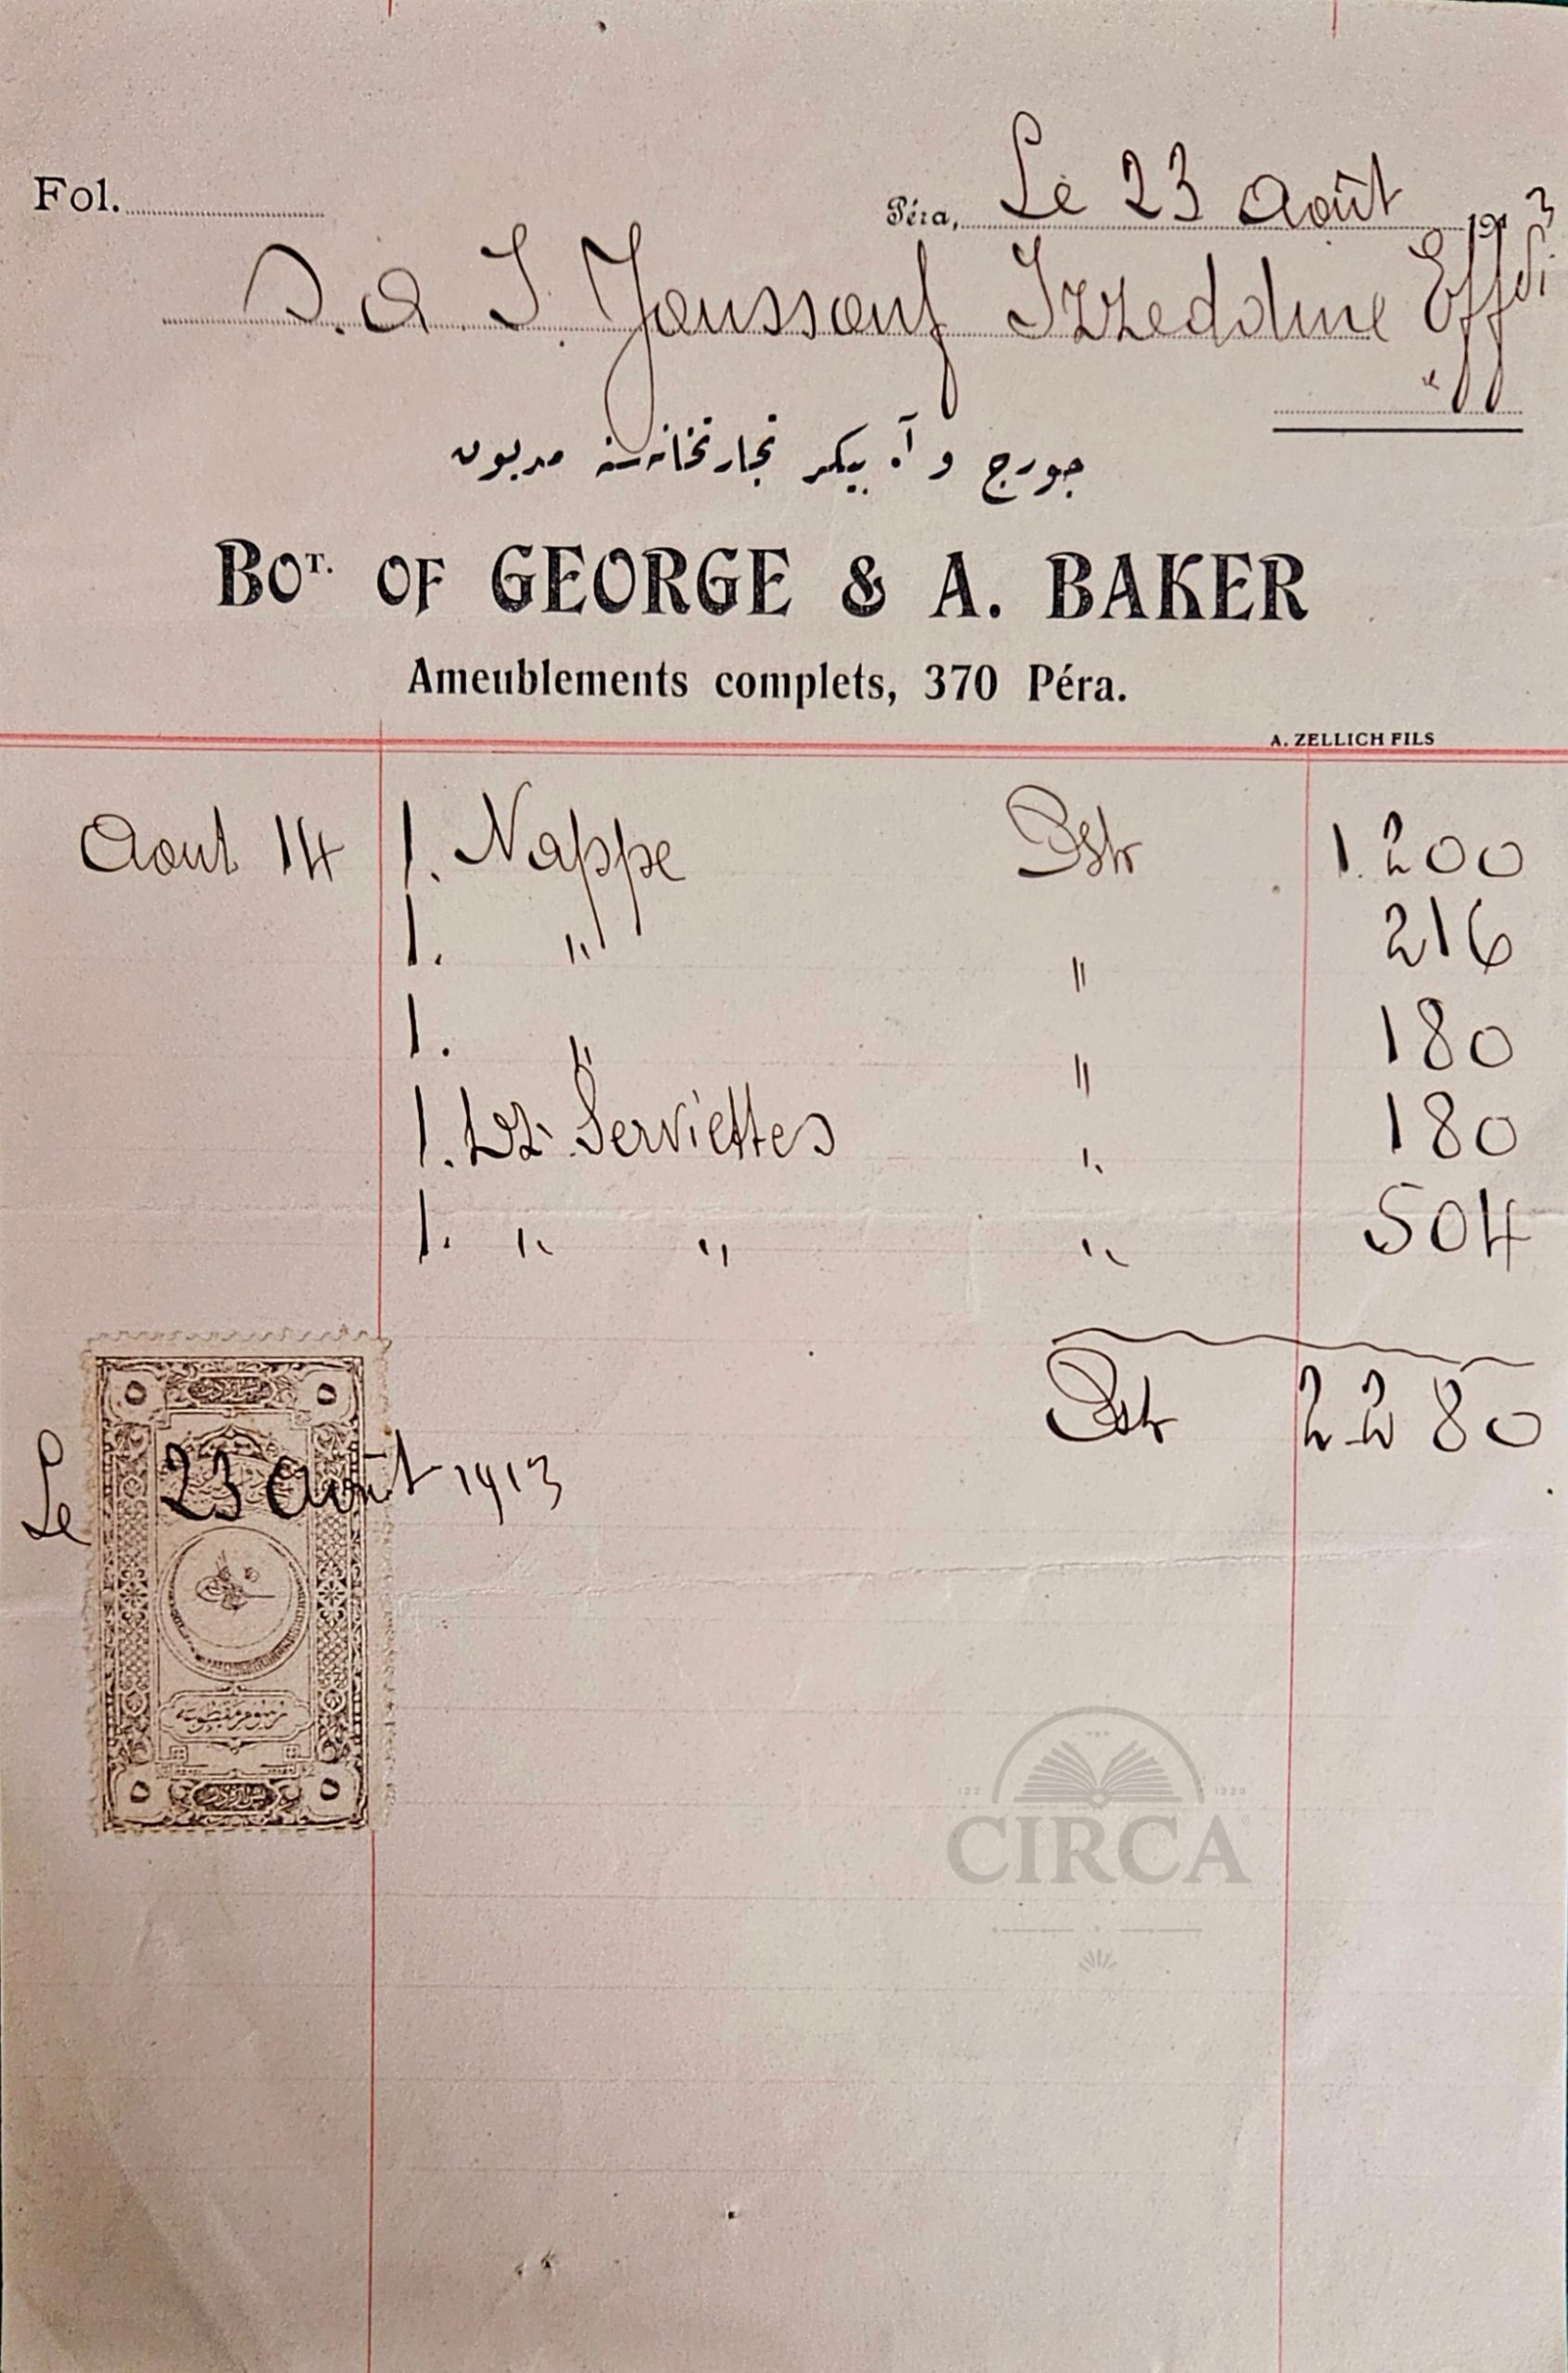 Fol.
Péra, Le 23 Août 1913
S. A. I. Youssouf Izzeddine Effdi
جورج و آ. بیکر تجارتخانه‌سنه مدیون
BOT. OF GEORGE & A. BAKER
Ameublements complets, 370 Péra.
A. ZELLICH FILS
Aout 14 1. Nappe Pstr 1.200
1. " " 216
1. " " 180
1. Dz. Serviettes " 180
1. " " " 504
Pstr 2280
Le 23 Août 1913
٥ ٥
٥ ٥
CIRCA